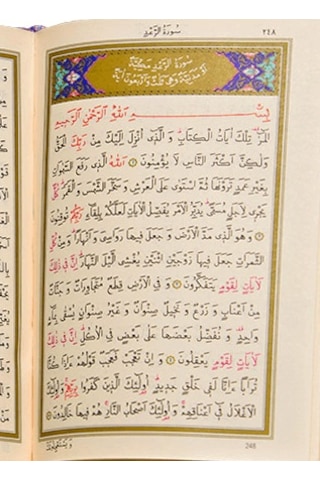 سُورَةُ الرَّعْدِ ٢٤٨
سُورَةُ الرَّعْدِ مَكِّيَّةٌ
اَوْ مَدَنِيَّةٌ وَهِيَ ثَلٰثٌ وَاَرْبَعُونَ اٰيَةً
بِسْمِ اللّٰهِ الرَّحْمٰنِ الرَّحِيمِ
الٓمٓرٰ تِلْكَ اٰيَاتُ الْكِتَابِ وَ الَّذِٓى اُنْزِلَ اِلَيْكَ مِنْ رَبِّكَ الْحَقُّ
وَلٰكِنَّ اَكْثَرَ النَّاسِ لَا يُؤْمِنُونَ ١ اَللّٰهُ الَّذِى رَفَعَ السَّمٰوَاتِ
بِغَيْرِ عَمَدٍ تَرَوْنَهَا ثُمَّ اسْتَوٰى عَلَى الْعَرْشِ وَ سَخَّرَ الشَّمْسَ وَ الْقَمَرَ كُلٌّ
يَجْرِى لِاَجَلٍ مُسَمًّى يُدَبِّرُ الْاَمْرَ يُفَصِّلُ الْاٰيَاتِ لَعَلَّكُمْ بِلِقَٓاءِ رَبِّكُمْ تُوقِنُونَ
٢ وَهُوَ الَّذِى مَدَّ الْاَرْضَ وَ جَعَلَ فِيهَا رَوَاسِىَ وَ اَنْهَارًا وَ مِنْ كُلِّ
الثَّمَرَاتِ جَعَلَ فِيهَا زَوْجَيْنِ اثْنَيْنِ يُغْشِى الَّيْلَ النَّهَارَ اِنَّ فِى ذٰلِكَ
لَاٰيَاتٍ لِقَوْمٍ يَتَفَكَّرُونَ ٣ وَ فِى الْاَرْضِ قِطَعٌ مُتَجَاوِرَاتٌ وَ جَنَّاتٌ
مِنْ اَعْنَابٍ وَ زَرْعٌ وَ نَخِيلٌ صِنْوَانٌ وَ غَيْرُ صِنْوَانٍ يُسْقٰى بِمَٓاءٍ
وَاحِدٍ وَ نُفَضِّلُ بَعْضَهَا عَلٰى بَعْضٍ فِى الْاُكُلِ اِنَّ فِى ذٰلِكَ
لَاٰيَاتٍ لِقَوْمٍ يَعْقِلُونَ ٤ وَ اِنْ تَعْجَبْ فَعَجَبٌ قَوْلُهُمْ ءَاِذَا كُنَّا
تُرَابًا ءَاِنَّا لَفِى خَلْقٍ جَدِيدٍ اُولٰٓئِكَ الَّذِينَ كَفَرُوا بِرَبِّهِمْ وَ اُولٰٓئِكَ
الْاَغْلَالُ فِٓى اَعْنَاقِهِمْ وَ اُولٰٓئِكَ اَصْحَابُ النَّارِ هُمْ فِيهَا خَالِدُونَ
248